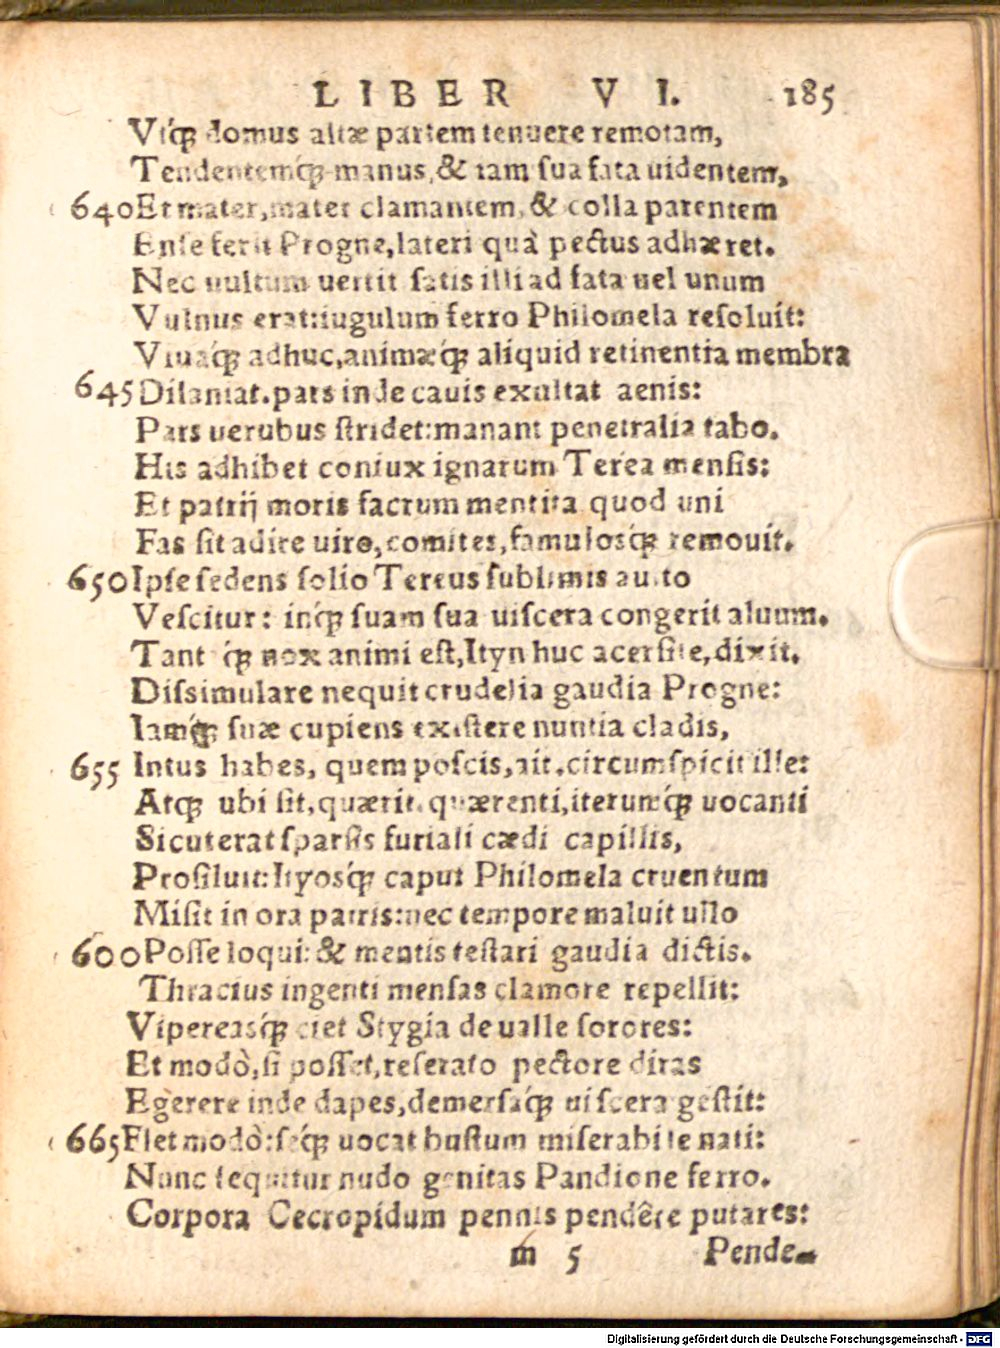 LIBER VI. 185
Vtq́ꝫ domus altæ partem tenuere remotam,
Tendentemq́ꝫ manus, & iam sua fata uidentem,
640 Et mater, mater clamantem, & colla parentem
Ense ferit Progne, lateri quà pectus adhæret.
Nec uultum uertit satis illi ad fata uel unum
Vulnus erat: iugulum ferro Philomela resoluit:
Viuaq́ꝫ adhuc, animæq́ꝫ aliquid retinentia membra
645 Dilaniat. pars inde cauis exultat aenis:
Pars uerubus stridet: manant penetralia tabo.
His adhibet coniux ignarum Terea mensis:
Et patrij moris sacrum mentita quod uni
Fas sit adire uiro, comites, famulosq́ꝫ remouit.
650 Ipse sedens solio Tereus sublimis auito
Vescitur: inq́ꝫ suam sua uiscera congerit aluum.
Tant q́ꝫ nox animi est, Ityn huc acersite, dixit.
Dissimulare nequit crudelia gaudia Progne:
Iamq́ꝫ suæ cupiens existere nuntia cladis,
655 Intus habes, quem poscis, ait. circumspicit ille:
Atqꝫ ubi sit, quærit. quærenti, iterumq́ꝫ uocanti
Sicut erat sparsis furiali cædi capillis,
Prosiluit: Ityosq́ꝫ caput Philomela cruentum
Misit in ora patris: nec tempore maluit ullo
600 Posse loqui: & mentis testari gaudia dictis.
Thracius ingenti mensas clamore repellit:
Vipereasq́ꝫ ciet Stygia de ualle sorores:
Et modò, si posset, reserato pectore diras
Egerere inde dapes, demersaq́ꝫ uiscera gestit:
665 Flet modò: seq́ꝫ uocat bustum miserabile nati:
Nunc sequitur nudo genitas Pandione ferro.
Corpora Cecropidum pennis pendêre putares:
m 5 Pende-
Digitalisierung gefördert durch die Deutsche Forschungsgemeinschaft - DFG